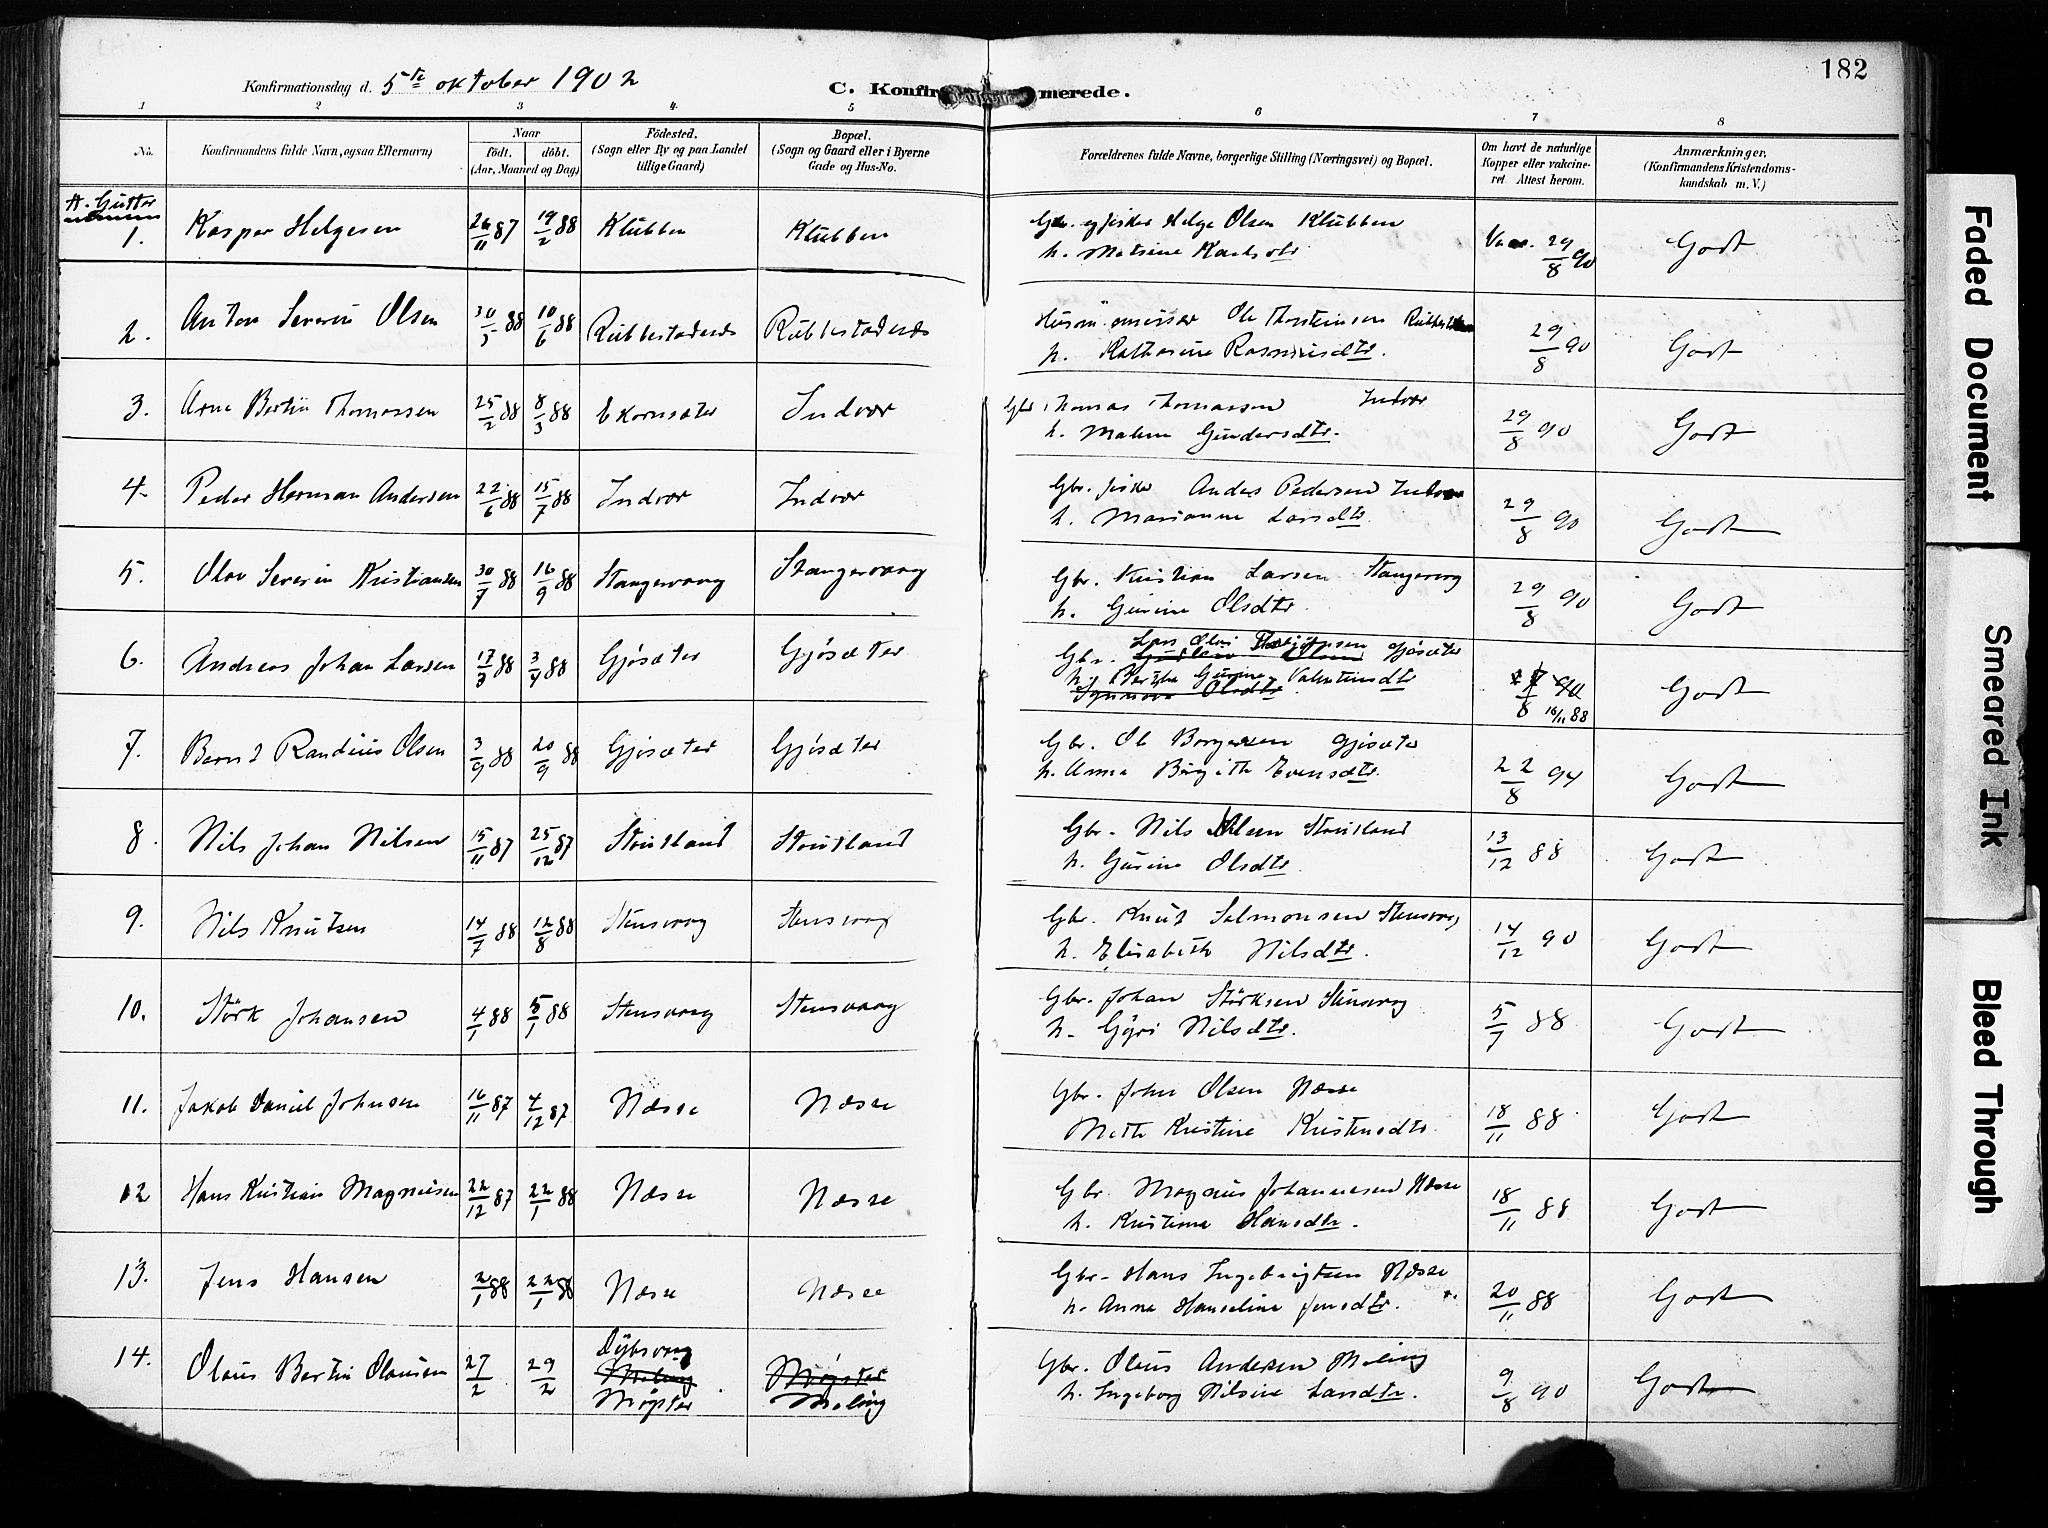 182
Konfirmationsdag d. 5te oktober 1902
C. Konfir merede.
1 2 3 4 5 6 7 8
No.
Konfirmandens fulde Navn, ogsaa Efternavn)
Naar
födt. döbt.
(Aar, Maaned og Dag)
Födested.
(Sogn eller By og paa Landet
tillige Gaard)
Bopæl.
(Sogn og Gaard eller i Byerne
Gade og Hus-No.
Forældrenes fulde Navne, borgerlige Stilling (Næringsvei) og Bopæl.
Om havt de naturlige
Kopper eller vakcine-
ret. Attest herom.
Anmærkninger.
(Konfirmandens Kristendoms-
kundskab m. V.)
A. Gutter
1. Kasper Helgesen 26/11 87 19/2 88 Klubben Klubben
Gbr. og fisker Helge Olsen Klubben
h. Matsine 29/8 90 Godt
2. Anton Severin Olsen 30/5 88 10/6 88 Rubbestadnes Rubbestadnes
Ole Thorsteinsen
h. Katharine Rasmusdtr. 29/8 90 Godt
3. Arne Bertin Thomassen 25/2 88 8/3 88 Ekornsæter Indvær
Gbr. Thomas Thomassen Indvær
h. Malene Gundersdtr. 29/8 90 Godt
4. Peder Herman Andersen 22/6 88 15/7 88 Indvær Indvær
Gbr. fisker Anders Pedersen Indvær
h. Marianne Larsdtr. 29/8 90 Godt
5. Olav Severin Kristiansen 30/7 88 16/9 88 Stangervaag Stangervaag
Gbr. Kristian Larsen Stangervg
h. Gurine Olsdtr. 29/8 90 Godt
6. Andreas Johan Larsen 17/3 88 3/4 88 Gjøsæter Gjøsæter
Lars Olai Thorbjørnsen
Gbr. Gjøsæter
h. Bertha Gurine Valentinsdtr
Synneva Olsdtr. 8 90 16/11 88 Godt
7. Bernt Randius Olsen 3/9 88 20/9 88 Gjøsæter Gjøsæter
Gbr. Ole Borgersen Gjøsæter
h. Anna Birgithe Evensdtr. 22/8 94 Godt
8. Nils Johan Nilsen 15/11 87 25/12 87 Stoutland Stoutland
Gbr. Nils Olsen Stoutland
h. Gurine Olsdtr. 13/12 88 Godt
9. Nils Knutsen 14/7 88 12/8 88 Stensvaag Stensvag
Gbr. Knut Salmonsen Stensvag
h. Elisabeth Nilsdtr. 14/12 90 Godt
10. Størk Johansen 4/1 88 5/1 88 Stensvaag Stensvaag
Gbr. Johan Størksen Stensvag
h. Gyri Nilsdtr. 5/7 88 Godt
11. Jakob Daniel Johnsen 16/11 87 4/12 87 Næsse Næsse
Gbr. John Olsen Næsse
Mette Kristine Kristensdtr. 18/11 88 Godt
12 Hans Kristian Magnusen 22/12 87 22/1 88 Næsse Næsse
Gbr. Magnus Johannesen Næsse
h. Kristina Hansdtr. 18/11 88 Godt
13. Jens Hansen 2/1 88 22/1 88 Næsse Næsse
Gbr. Hans Ingebrigtsen Næsse
h. Anne Hanseline Jensdtr. 20/11 88 Godt
14. Olaus Bertin Olausen 27/2 29/2 Dybsvag Møgster
Meling Meling
Møgster
Gbr. Olaus Andersen Meling
h. Ingeborg Nilsine Larsdtr. 9/8 90 Godt
Faded Document
Smeared Ink
Bleed Through